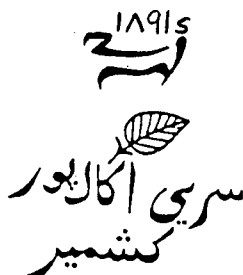 ۱۸۹۱ء
سری اکال پور
کشمیر